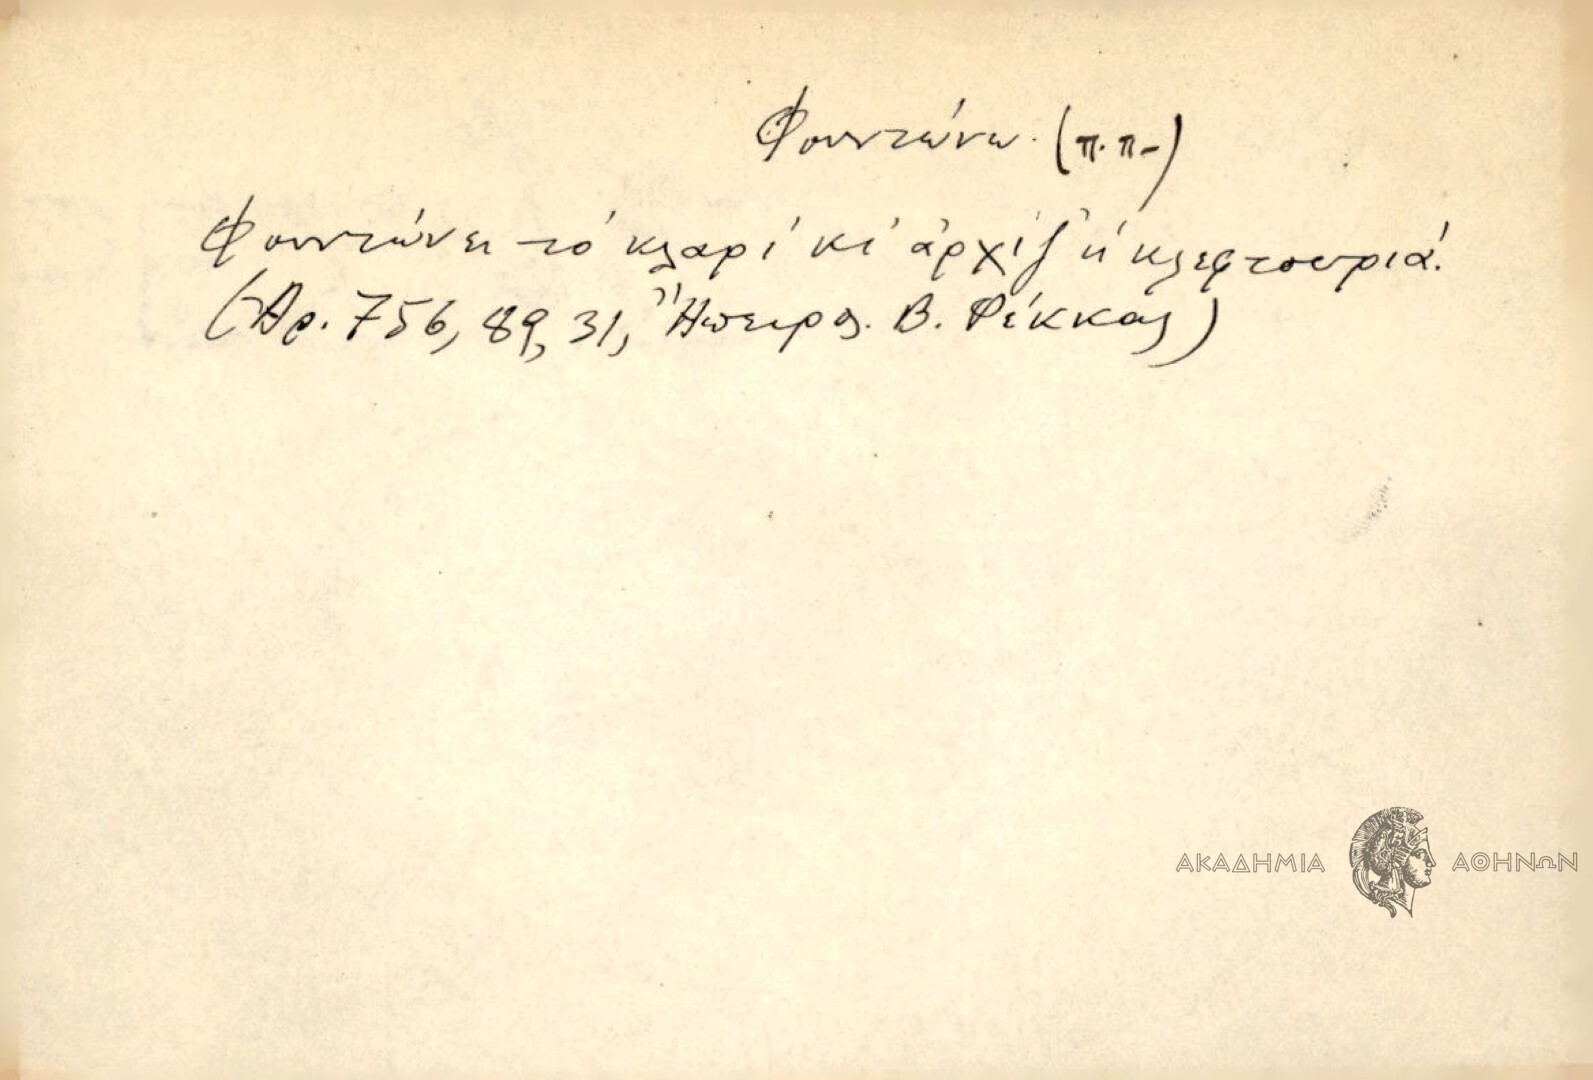 Φουντώνω. (π.π-)
Φουντώνει τό κλαρί κι' ἀρχίζ' ἡ κλεφτουριά.
(Ἀρ. 756, 89, 31, Ἤπειρος. Β. Φέκκας)
ΑΚΑΔΗΜΙΑ ΑΘΗΝΩΝ